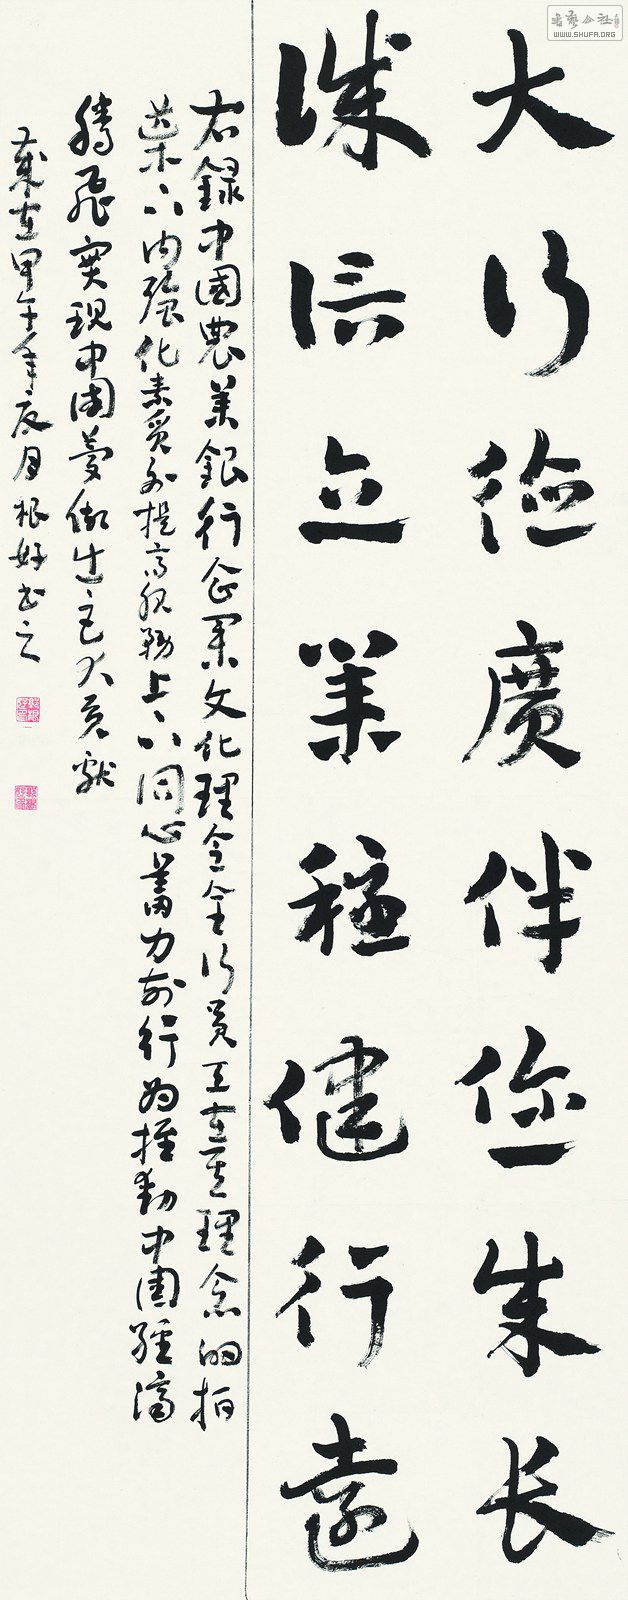 大行德廣伴您成长
誠信立業穩健行遠
右錄中國農業銀行企業文化理念全行員工在其理念的指
導下内強化素質外提高服務上下同心蓄力前行为推動中國經濟
騰飛實現中國夢做出更大貢獻
歲在甲午年夏月根好書之
書藝公社
WWW.SHUFA.ORG